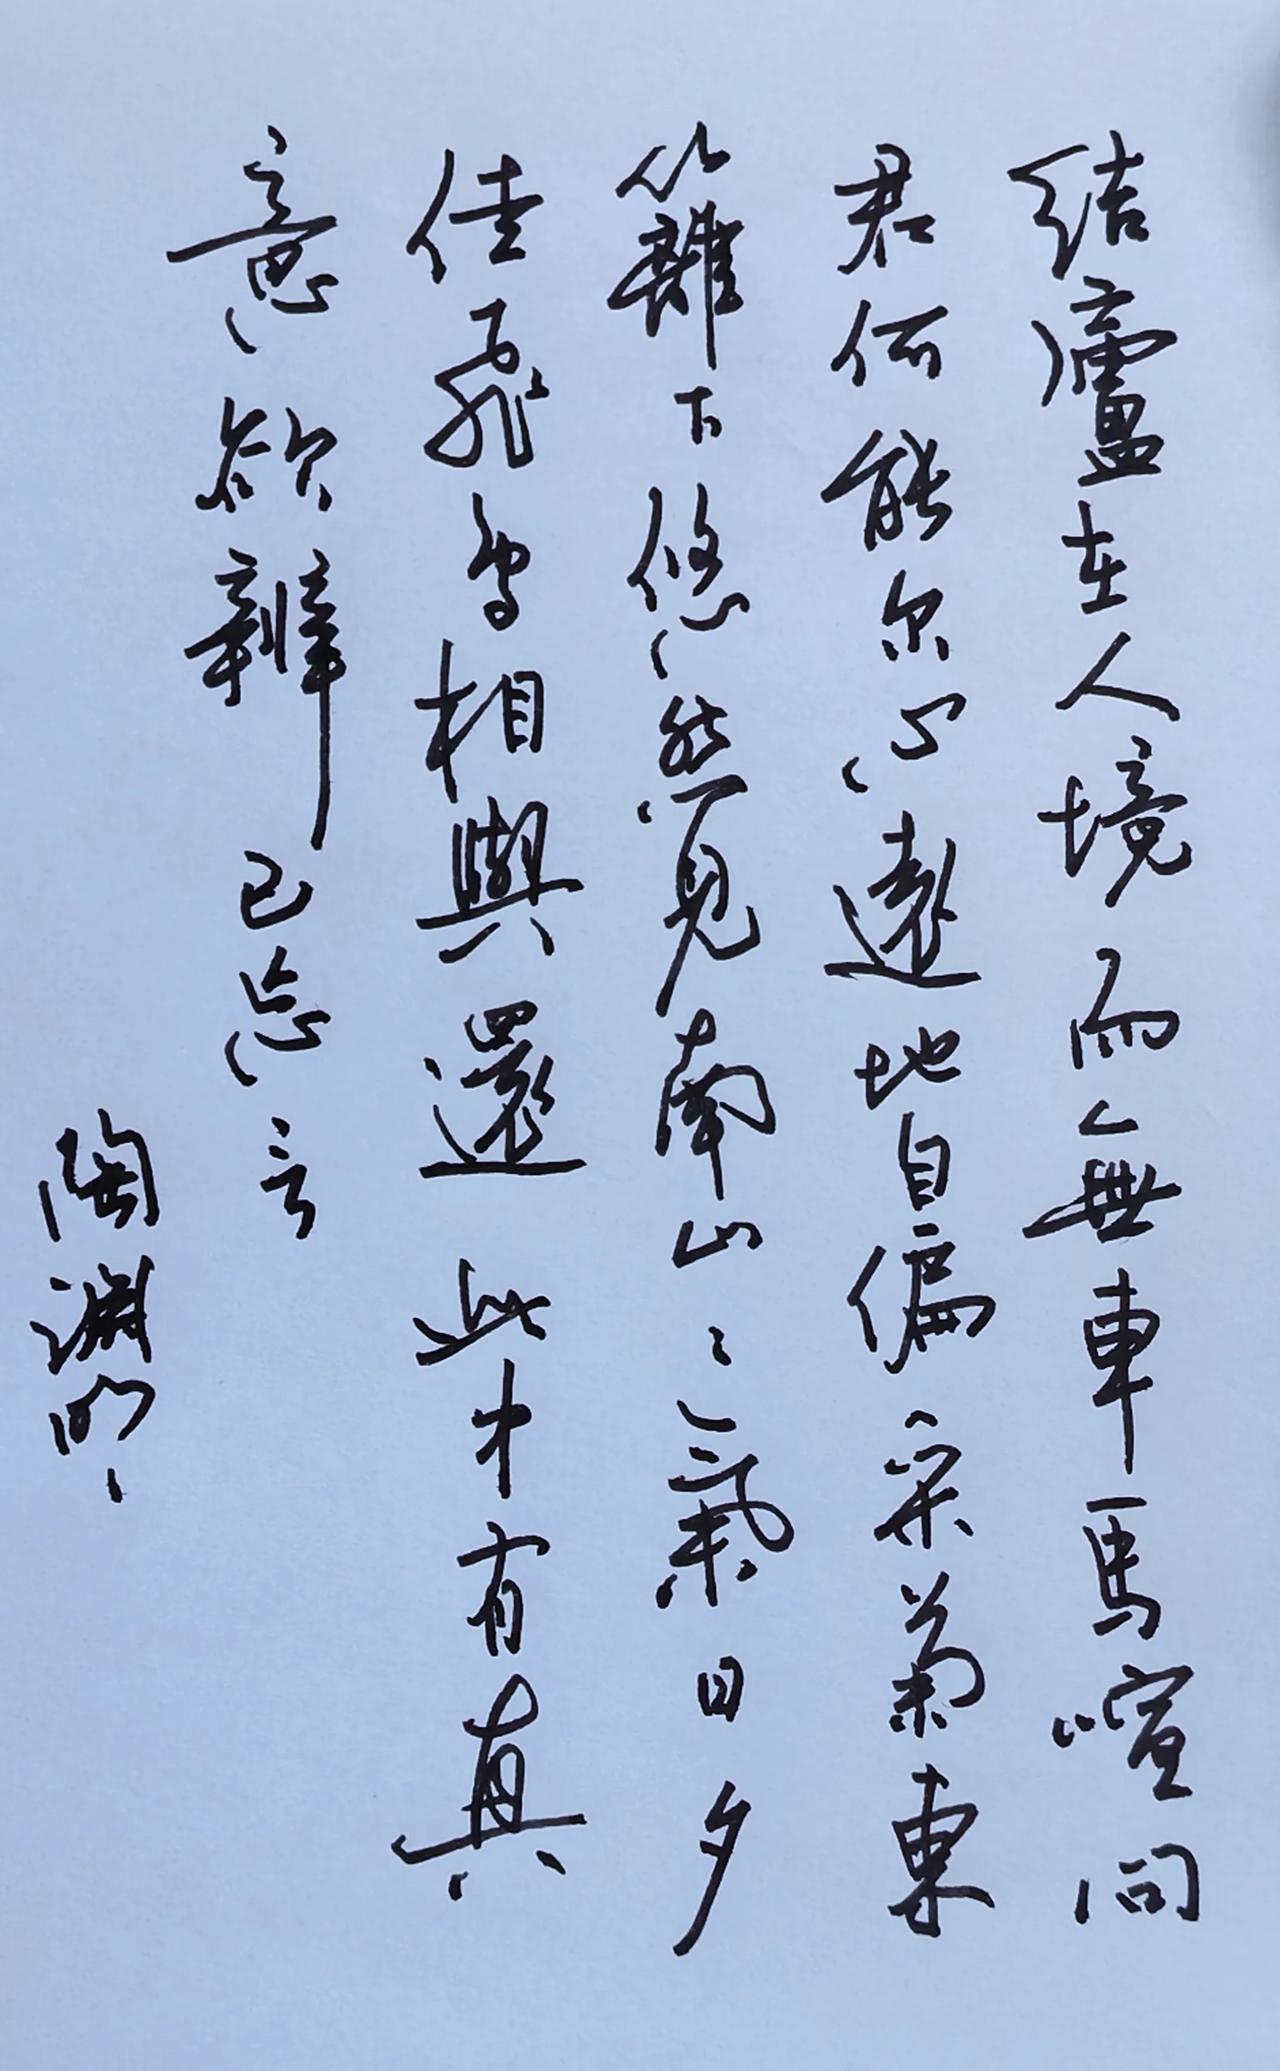 结廬在人境而無車馬喧问
君何能尔心遠地自偏采菊東
籬下悠然見南山山氣日夕
佳飛鸟相與還此中有真
意欲辨已忘言
陶淵明